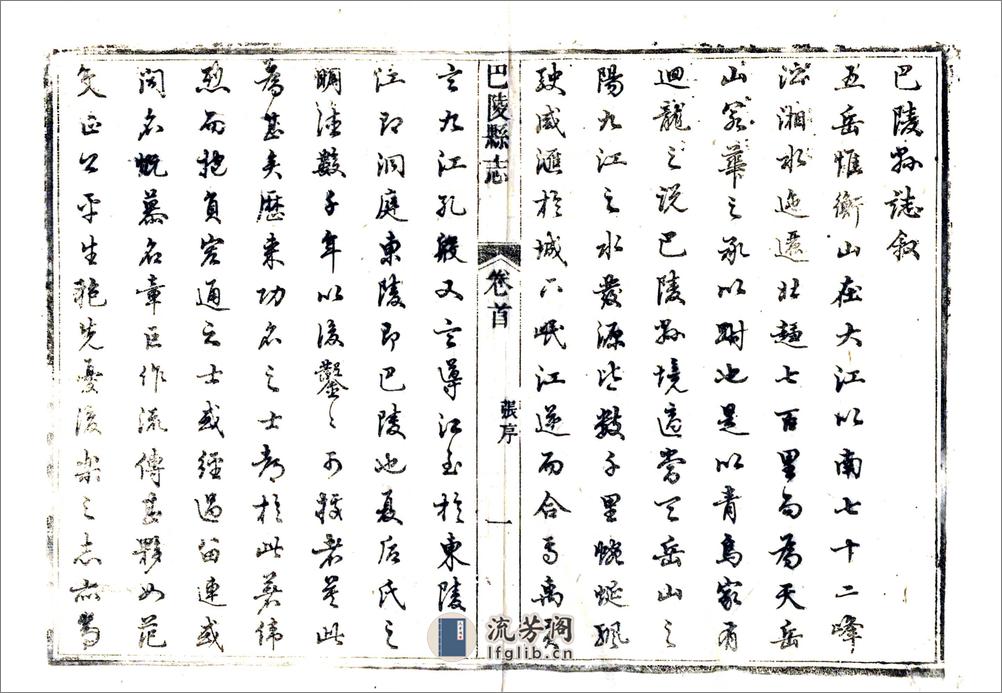 巴陵縣誌叙
五岳惟衡山在大江以南七十二峰
沿湘水迤邐北趨七百里而為天岳
山若華之承以跗也是以青烏家有
迴龍之說巴陵縣境適當天岳山之
陽九江之水發源皆數千里蜿蜒飄
駛咸滙於城下岷江逆而合焉禹貢
巴陵縣志 卷首 張序 一
言九江孔殷又言導江至於東陵
注即洞庭東陵即巴陵也夏后氏之
數千年以後鑿〻可按者莫此
為甚矣歷来功名之士都於此著偉
烈而抱負宏通之士或經過留連或
聞名慨慕名章巨作流傳甚夥如范
文正公平生抱先憂後樂之志亦嘗
流芳阁
lfglib.cn